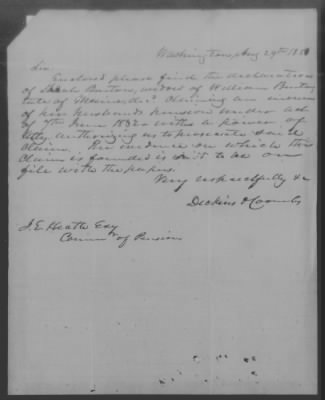 Washington, Aug 29th 185
Sir
Enclosed please find the declaration
of Sarah Burton, widow of William Burton
late of Maine, dec'd claiming an increase
of her husband's pension under act
of 7th June 1832 with a power of
atty authorizing us to prosecute said
claim. The evidence on which this
claim is founded is said to be on
file with the papers.
Very respectfully &c
Dickins & Coombs
J. E. Heath Esq
Comm of Pensions